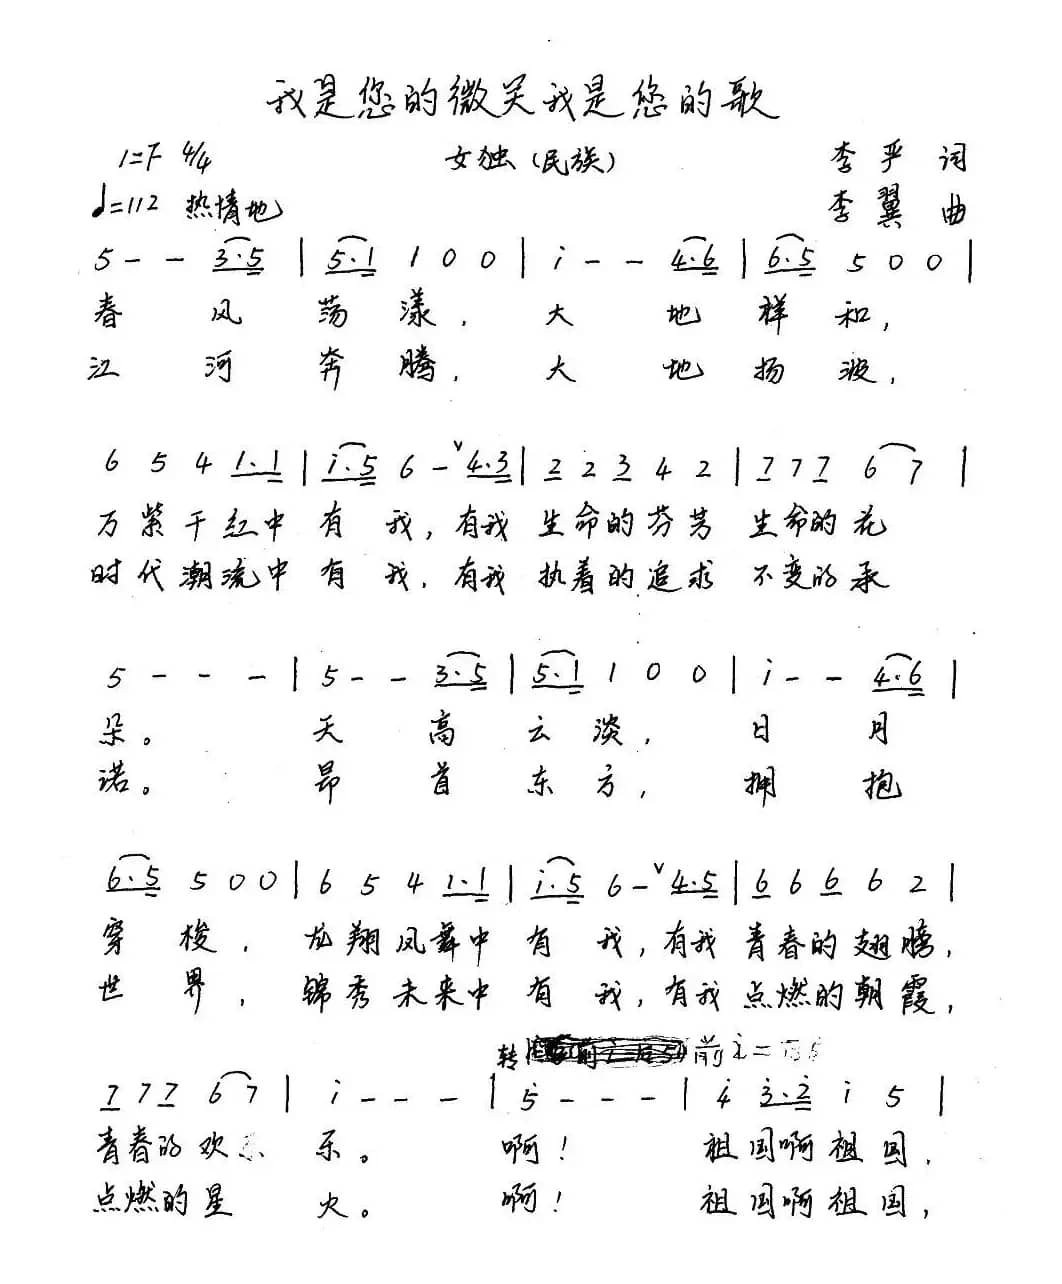 我是您的微笑我是您的歌
1=F 4/4 女独（民族） 李乎 词
♩=112 热情地 李翼 曲
5 - - 3·5 | 5·1 1 0 0 | i - - 4·6 | 6·5 5 0 0 |
春 风 荡 漾， 大 地 祥 和，
江 河 奔 腾， 大 地 扬 波，
6 5 4 1·1 | i·5 6 - ∨ 4·3 | 2 2 3 4 2 | 7 7 7 6 7 |
万紫千红中 有 我，有我 生命的芬芳 生命的花
时代潮流中 有 我，有我 执着的追求 不变的承
5 - - - | 5 - - 3·5 | 5·1 1 0 0 | i - - 4·6 |
朵。 天 高 云 淡， 日 月
诺。 昂 首 东 方， 拥 抱
6·5 5 0 0 | 6 5 4 1·1 | i·5 6 - ∨ 4·5 | 6 6 6 6 2 |
穿 梭， 龙翔凤舞中 有 我，有我 青春的翅膀，
世 界， 锦秀未来中 有 我，有我 点燃的朝霞，
转 前 i =
7 7 7 6 7 | i - - - | 5 - - - | 4 3·2 i 5 |
青春的欢 乐。 啊！ 祖国啊祖国，
点燃的星 火。 啊！ 祖国啊祖国，